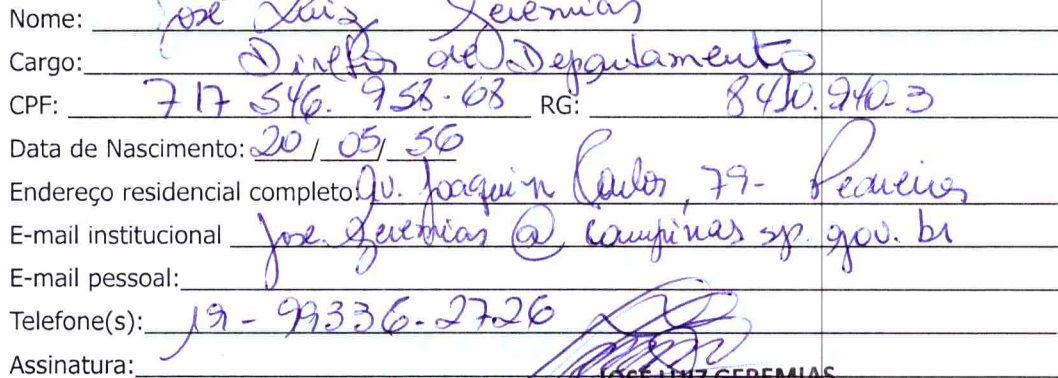 Nome: José Luiz Geremias
Cargo: Diretor de Departamento
CPF: 717 546. 958-68 RG: 8410.940-3
Data de Nascimento: 20 / 05 / 56
Endereço residencial completo: Av. Joaquim Carlos, 79- Pedreira
E-mail institucional jose.geremias @ campinas sp. gov. br
E-mail pessoal:
Telefone(s): 19 - 99336-2726
Assinatura:
JOSÉ LUIZ GEREMIAS